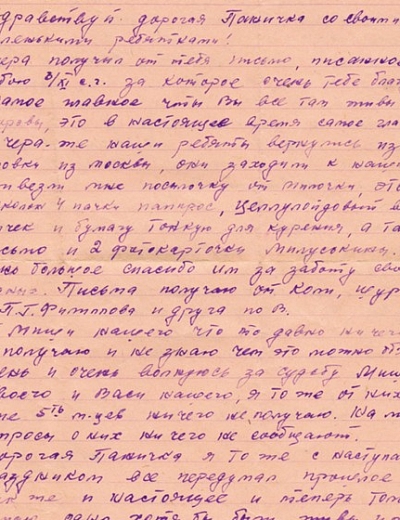 дравствуй дорогая Паничка со своими
ленькими ребятками!
ера получил от тебя письмо, писанное
бою 8/XI с.г. за которое очень тебе благ
амое главное что Вы все там живы
оровы, это в настоящее время самое гла
чера-же наши ребята вернулись из
овки из Москвы, они заходили к наше
ривезли мне посылочку от Милочки, это
4 пачки папирос, целлулоидовый
чек и бумагу тонкую для курения, а та
сьмо и 2 фотокарточки Милуськины.
нь большое спасибо им за заботу
Письма получаю от Коли, шур
П.Г. Филиппова и друга по В.
Миши нашего что то давно ничег
получаю и не знаю чем это можно
ень и очень волнуюсь за судьбу Миш
воего и Васи нашего, я то же от них
ше 5ть м-цев ничего не получаю. На м
просы о них ничего не сообщают.
орогая Паничка я то же с наступа
аздником все передумал прошлое
ак же и настоящее и теперь тол
дано хотя бы были живы и